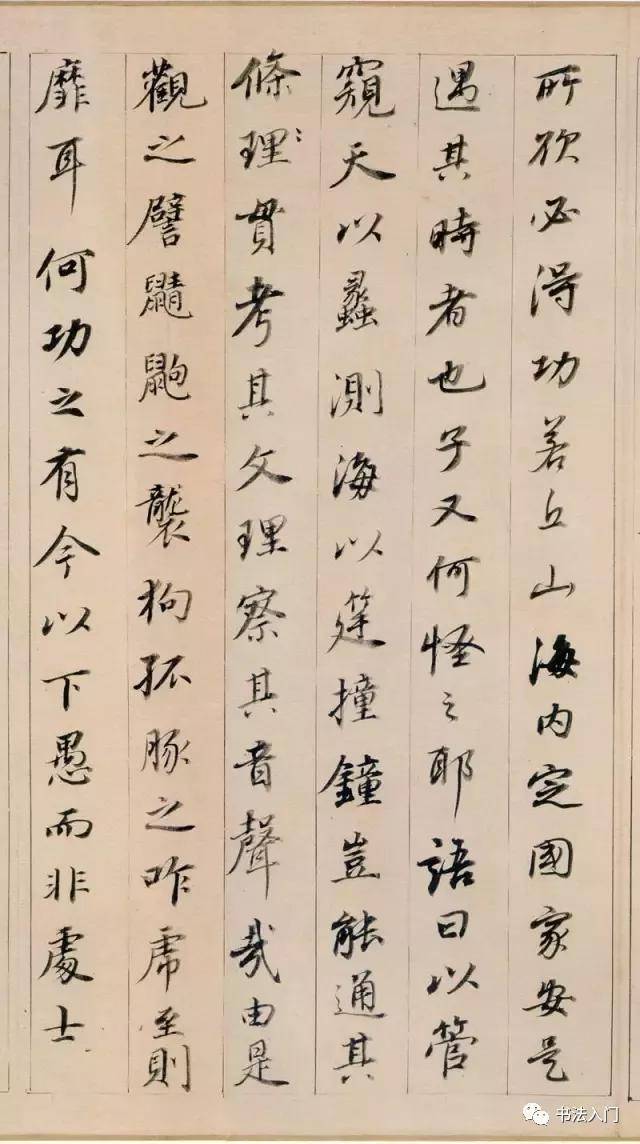 所欲必得功若丘山海内定國家安是
遇其時者也子又何怪之耶語曰以管
窺天以蠡測海以筳撞鐘豈能通其
條理貫考其文理察其音聲哉由是
觀之譬鼱鼩之襲狗孤豚之咋虎至則
靡耳何功之有今以下愚而非處士
书法入门